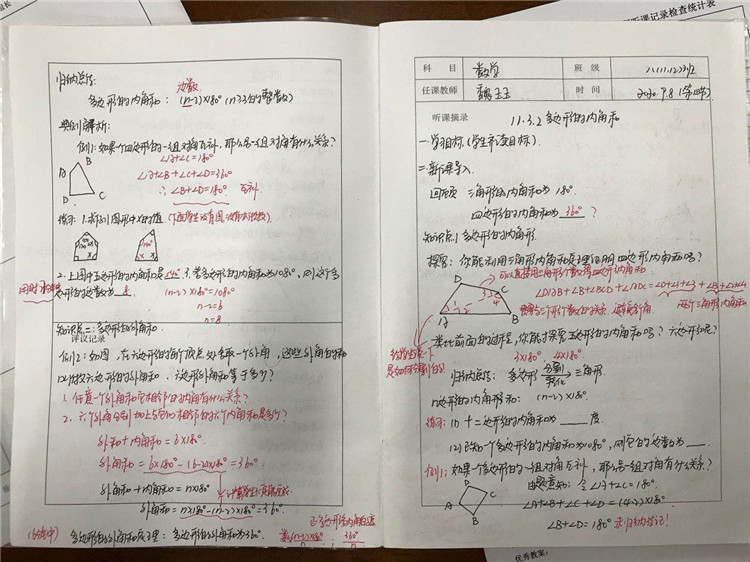 归纳总结: 边数
多边形的内角和: (n-2)×180° (n≥3的整数)
典例解析:
例1: 如果一个四边形的一组对角互补, 那么另一组对角有什么关系?
∠A+∠C=180°
∠A+∠B+∠C+∠D=360°
∴∠B+∠D=180° 互补
A
B
C
D
练习: 1.求下列图形中x的值
2.上图中五边形的内角和是540° 3.若多边形的内角和为1080°, 则这个多
边形的边数为 8
(n-2)×180°=1080°
n-2=6
n=8
知识点二: 多边形的外角和
评议记录
例2: 如图, 在六边形的每个顶点处各取一个外角, 这些外角的和
叫做六边形的外角和. 六边形外角和等于多少?
1.任意一个外角和它相邻的内角有什么关系?
2.六个外角分别加上与它们相邻的六个内角和是多少?
外角和+内角和=6×180°
外角和=6×180°-(6-2)×180°=360°
外角和+内角和=n×180°
外角和=n×180°-(n-2)×180°=360°
多边形的外角和定理: 多边形的外角和为360°.
(n-2)×180°
n
360°
n
听课记录检查统计表
科 目 数学 班 级
任课教师 魏玉玉 时 间 2020.9.8
听课摘录 11.3.2 多边形的内角和
一.学习目标 (学生齐读目标)
二.新课导入
回顾 三角形的内角和为 180°
四边形的内角和为 360° ?
知识点1 多边形的内角和
探究: 你能利用三角形内角和定理证明四边形内角和吗?
D
C
A
B
∠DAB+∠B+∠BCD+∠ADC=
两个三角形内角和
类比前面的过程, 你能探索五边形的内角和吗? 六边形呢?
3×180° 4×180°
归纳总结: 多边形 分割 转化 三角形
n边形的内角和: (n-2)×180°
练习: (1) 十二边形的内角和为 ____ 度.
(2) 已知一个多边形的内角和为1080°, 则它的边数为 ____.
例1: 如果一个四边形的一组对角互补, 那么另一组对角有什么关系?
由题意知: ∠A+∠C=180°
∠A+∠B+∠C+∠D=(4-2)×180°
∠B+∠D=180°
A
B
C
D
优秀教案: